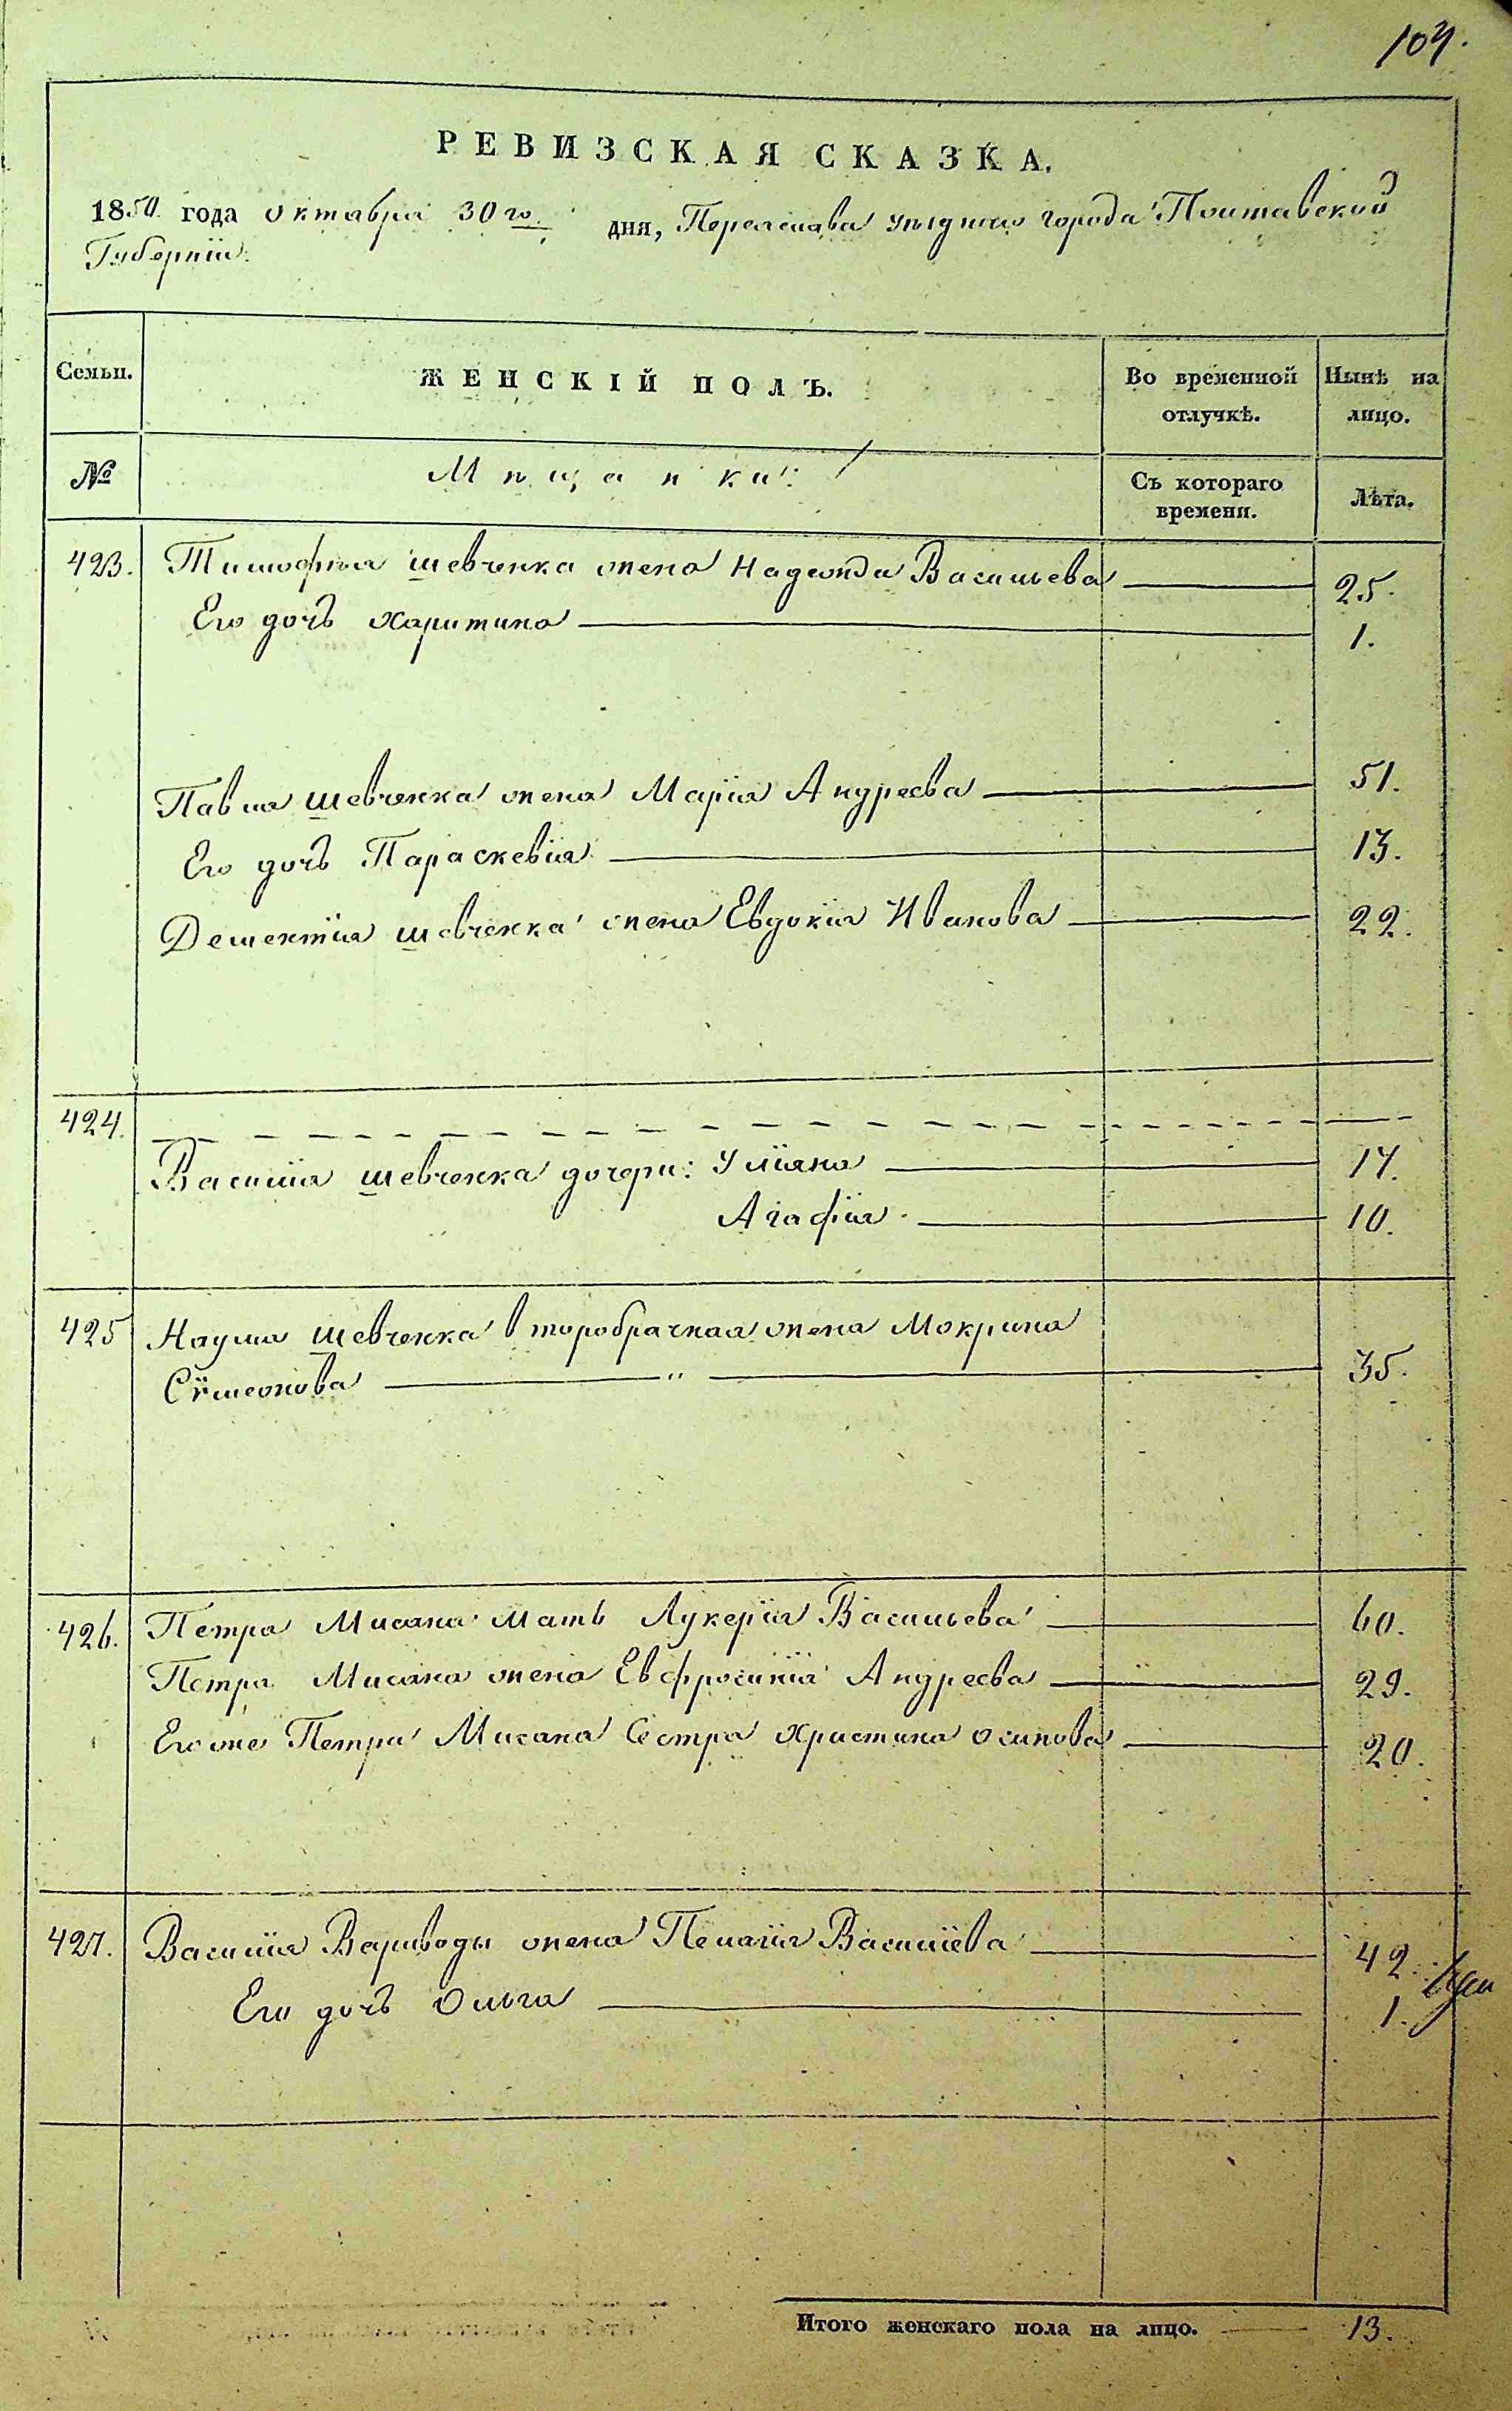 104.
РЕВИЗСКАЯ СКАЗКА.
1850 года октября 30го дня, Переяслава уѣзднаго города Полтавской
Губерніи.
Семьи. ЖЕНСКІЙ ПОЛЪ. Во временной отлучкѣ. Нынѣ на лицо.
№ Мѣщанки: Съ котораго времени. Лѣта.
423. Тимофѣя Шевченка жена Надежда Васильева 25.
Его дочь Харитина 1.
Павла Шевченка жена Марія Андреева 51.
Его дочь Параскевія 13.
Дементія Шевченка жена Евдокія Иванова 22.
424.
Василія Шевченка дочери: Уліяна 17.
Агафія 10.
425 Наума Шевченка второбрачная жена Мокрина
Сѵмеонова " 35.
426. Петра Мисана мать Лукерія Васильева 60.
Петра Мисана жена Евфросинія Андреева 29.
Его же Петра Мисана Сестра Христина Осипова 20.
427. Василія Вариводы жена Пелагія Василіева 42.
Его дочь Ольга 1.
Итого женскаго пола на лицо. 13.